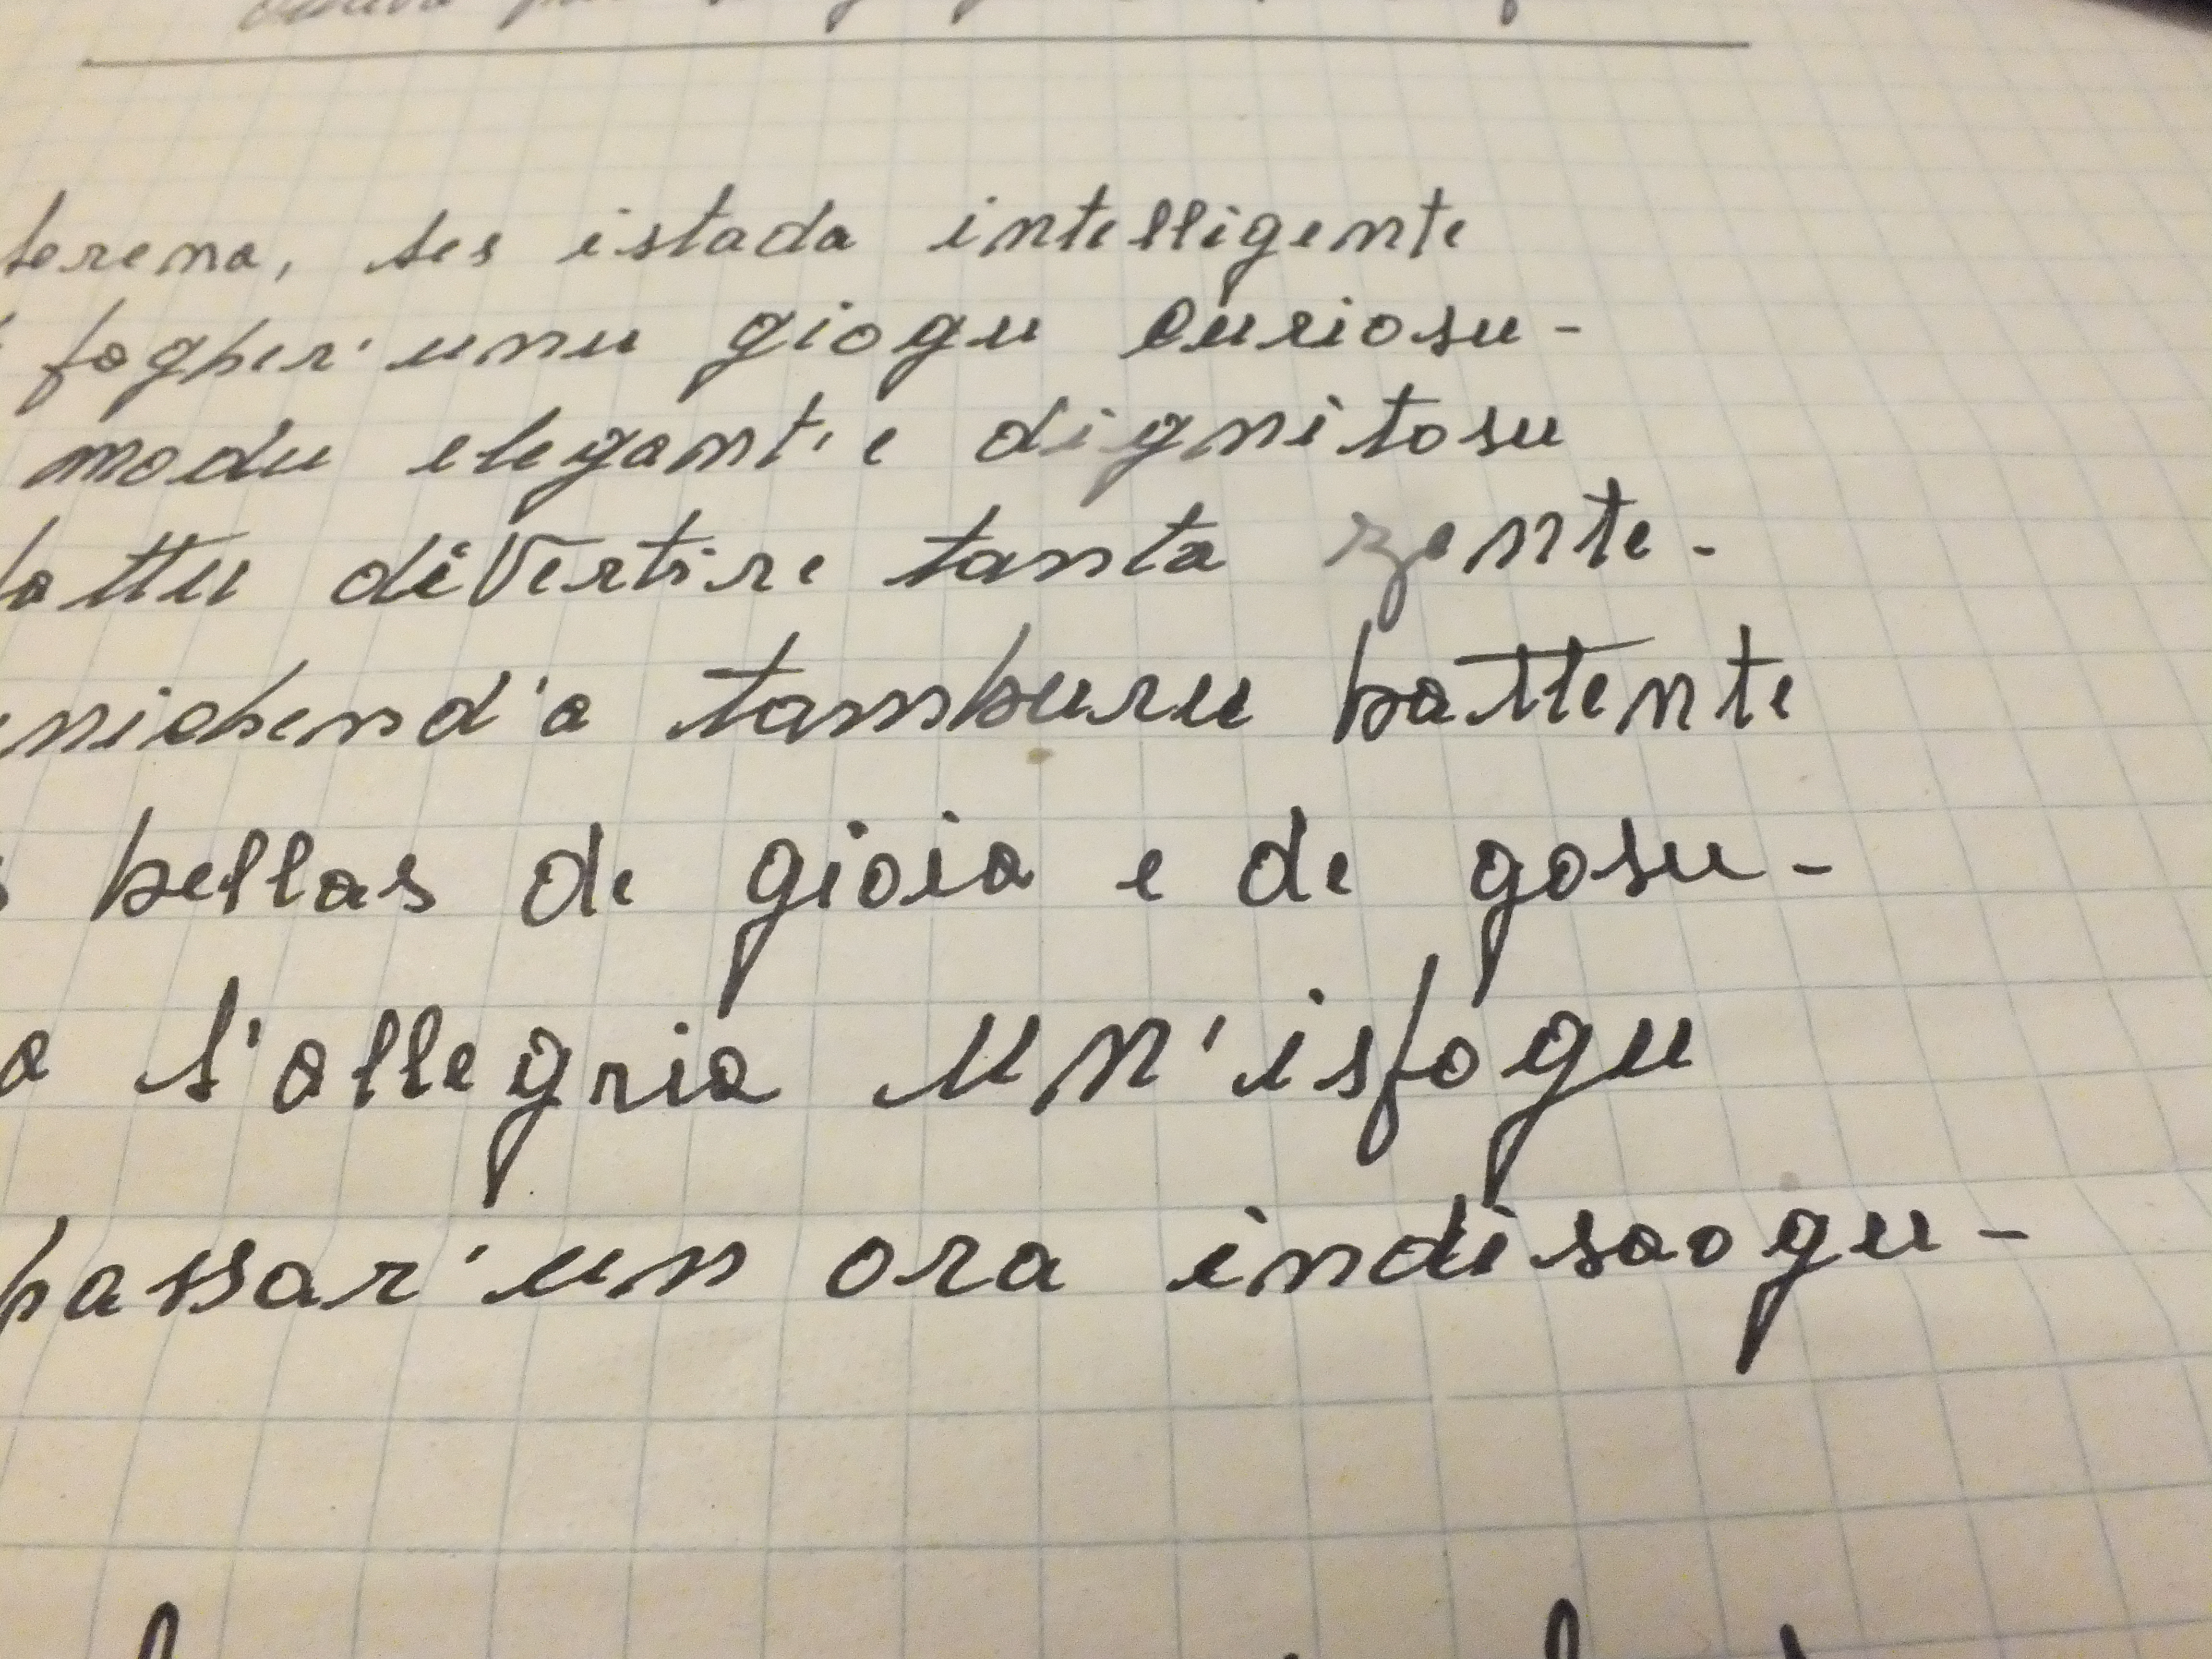 serena, ses istada intelligente
fogher' unu giogu curiosu-
modu elegant'e dignitosu
divertire tanta zente-
tamburu battente
bellas de gioia e de gosu-
a s'allegria un'isfogu
passar'un ora indisaogu-